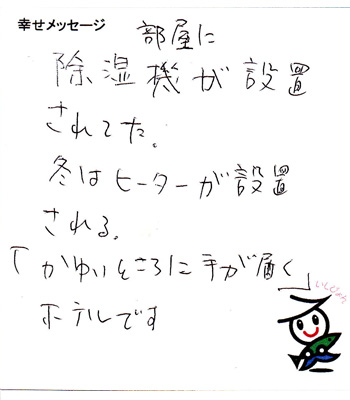 幸せメッセージ
部屋に
除湿機が設置
されてた。
冬はヒーターが設置
される。
「かゆいところに手が届く」
ホテルです